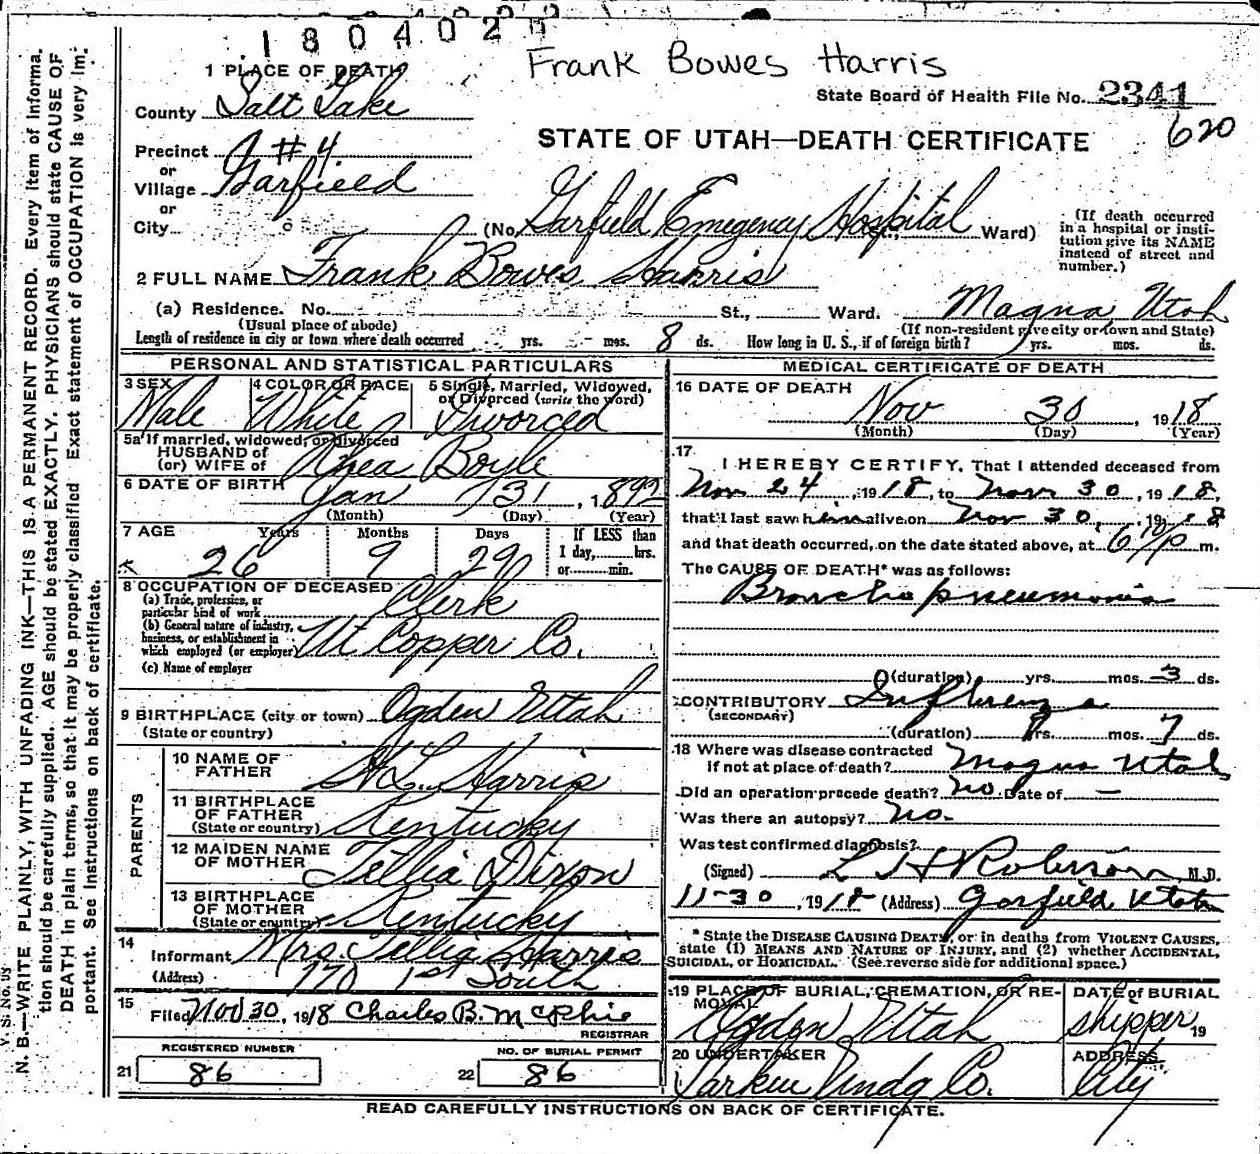 1804020
Frank Bowes Harris
State Board of Health File No. 2341
620
STATE OF UTAH—DEATH CERTIFICATE
1 PLACE OF DEATH
County Salt Lake
Precinct #4
or
Village Garfield
or
City
(No. Garfield Emegency Hospital St., Ward)
(If death occurred
in a hospital or insti-
tution give its NAME
instead of street and
number.)
2 FULL NAME Frank Bowes Harris
(a) Residence. No. St., Ward. Magna Utah
(Usual place of abode) (If non-resident give city or town and State)
Length of residence in city or town where death occurred yrs. - mos. 8 ds. How long in U. S., if of foreign birth? yrs. mos. ds.
PERSONAL AND STATISTICAL PARTICULARS
3 SEX 4 COLOR OR RACE 5 Single, Married, Widowed,
or Divorced (write the word)
Male White Divorced
5a If married, widowed, or divorced
HUSBAND of
(or) WIFE of Rhea Boyle
6 DATE OF BIRTH Jan 31, 1892
(Month) (Day) (Year)
7 AGE Years Months Days If LESS than
1 day, hrs.
or min.
26 9 29
8 OCCUPATION OF DECEASED
(a) Trade, profession, or
particular kind of work Clerk
(b) General nature of industry,
business, or establishment in
which employed (or employer) Ut Copper Co.
(c) Name of employer
9 BIRTHPLACE (city or town) Ogden Utah
(State or country)
PARENTS
10 NAME OF
FATHER Harris
11 BIRTHPLACE
OF FATHER
(State or country) Kentucky
12 MAIDEN NAME
OF MOTHER Tellia Dixon
13 BIRTHPLACE
OF MOTHER
(State or country) Kentucky
14
Informant Mrs. Tellia Harris
(Address) 170 1st South
15
Filed Nov 30, 1918 Charles B. McPhie
REGISTRAR
REGISTERED NUMBER
21 86
NO. OF BURIAL PERMIT
22 86
MEDICAL CERTIFICATE OF DEATH
16 DATE OF DEATH
Nov 30, 1918
(Month) (Day) (Year)
17
I HEREBY CERTIFY, That I attended deceased from
Nov 24, 1918, to Nov 30, 1918,
that I last saw him alive on Nov 30, 1918
and that death occurred, on the date stated above, at 6 10/p m.
The CAUSE OF DEATH* was as follows:
Broncho pneumonia
(duration) yrs. mos. 3 ds.
CONTRIBUTORY Influenza
(SECONDARY)
(duration) yrs. mos. 7 ds.
18 Where was disease contracted
if not at place of death? Magna Utah
Did an operation precede death? no. Date of —
Was there an autopsy? no.
Was test confirmed diagnosis?
(Signed) L H Roberson, M.D.
11-30, 1918 (Address) Garfield Utah
* State the DISEASE CAUSING DEATH, or in deaths from VIOLENT CAUSES,
state (1) MEANS AND NATURE OF INJURY, and (2) whether ACCIDENTAL,
SUICIDAL, or HOMICIDAL. (See reverse side for additional space.)
19 PLACE OF BURIAL, CREMATION, OR RE-
MOVAL
Ogden Utah
DATE of BURIAL
shipper 19
20 UNDERTAKER
Larkin Undg Co.
ADDRESS
City
READ CAREFULLY INSTRUCTIONS ON BACK OF CERTIFICATE.
V. S. No. us
N. B.—WRITE PLAINLY, WITH UNFADING INK—THIS IS A PERMANENT RECORD. Every item of informa-
tion should be carefully supplied. AGE should be stated EXACTLY. PHYSICIANS should state CAUSE OF
DEATH in plain terms, so that it may be properly classified. Exact statement of OCCUPATION is very im-
portant. See instructions on back of certificate.